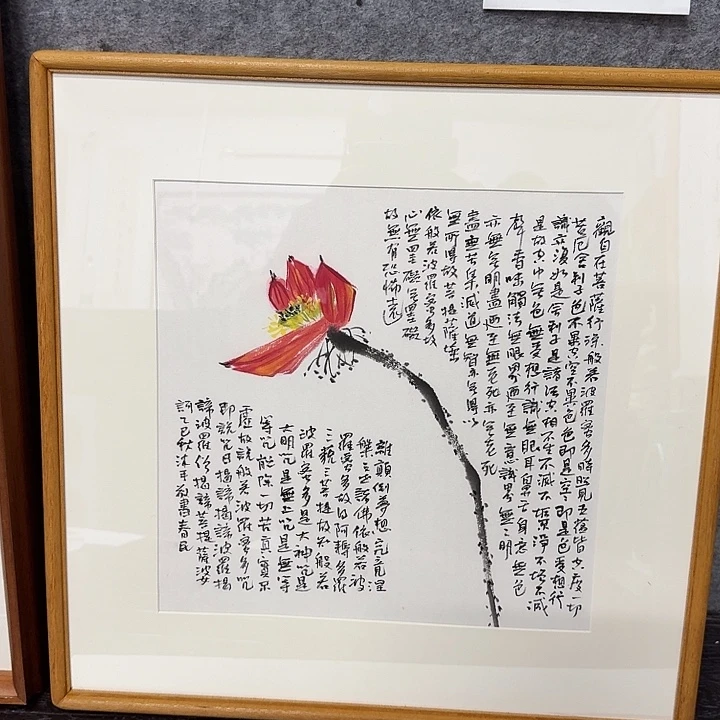 觀自在菩薩行深般若波羅蜜多時照見五蘊皆空度一切
苦厄舍利子色不異空空不異色色即是空空即是色受想行
識亦復如是舍利子是諸法空相不生不滅不垢不淨不增不減
是故空中無色無受想行識無眼耳鼻舌身意無色
聲香味觸法無眼界乃至無意識界無無明
亦無無明盡乃至無老死亦無老死
盡無苦集滅道無智亦無得以
無所得故菩提薩埵
依般若波羅蜜多故
心無罣礙無罣礙
故無有恐怖遠
離顛倒夢想究竟涅
槃三世諸佛依般若波
羅蜜多故得阿耨多羅
三藐三菩提故知般若
波羅蜜多是大神咒是
大明咒是無上咒是無等
等咒能除一切苦真實不
虛故說般若波羅蜜多咒
即說咒曰揭諦揭諦波羅揭
諦波羅僧揭諦菩提薩婆
訶乙巳秋沐手敬書春民